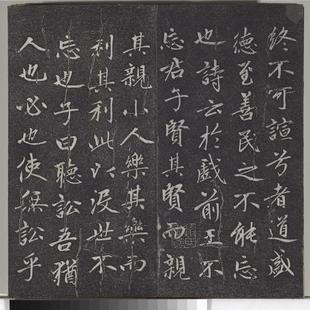 終不可諠兮者道盛
德至善民之不能忘
也詩云於戲前王不
忘君子賢其賢而親
其親小人樂其樂而
利其利此以没世不
忘也子曰聽訟吾猶
人也必也使無訟乎